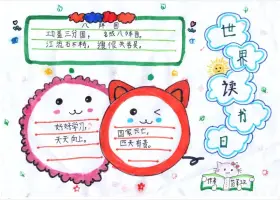 八阵图
功盖三分国，名成八阵图。
江流石不转，遗恨失吞吴。
世
界
读
书
日
好好学习，
天天向上。
国家兴亡，
匹夫有责。